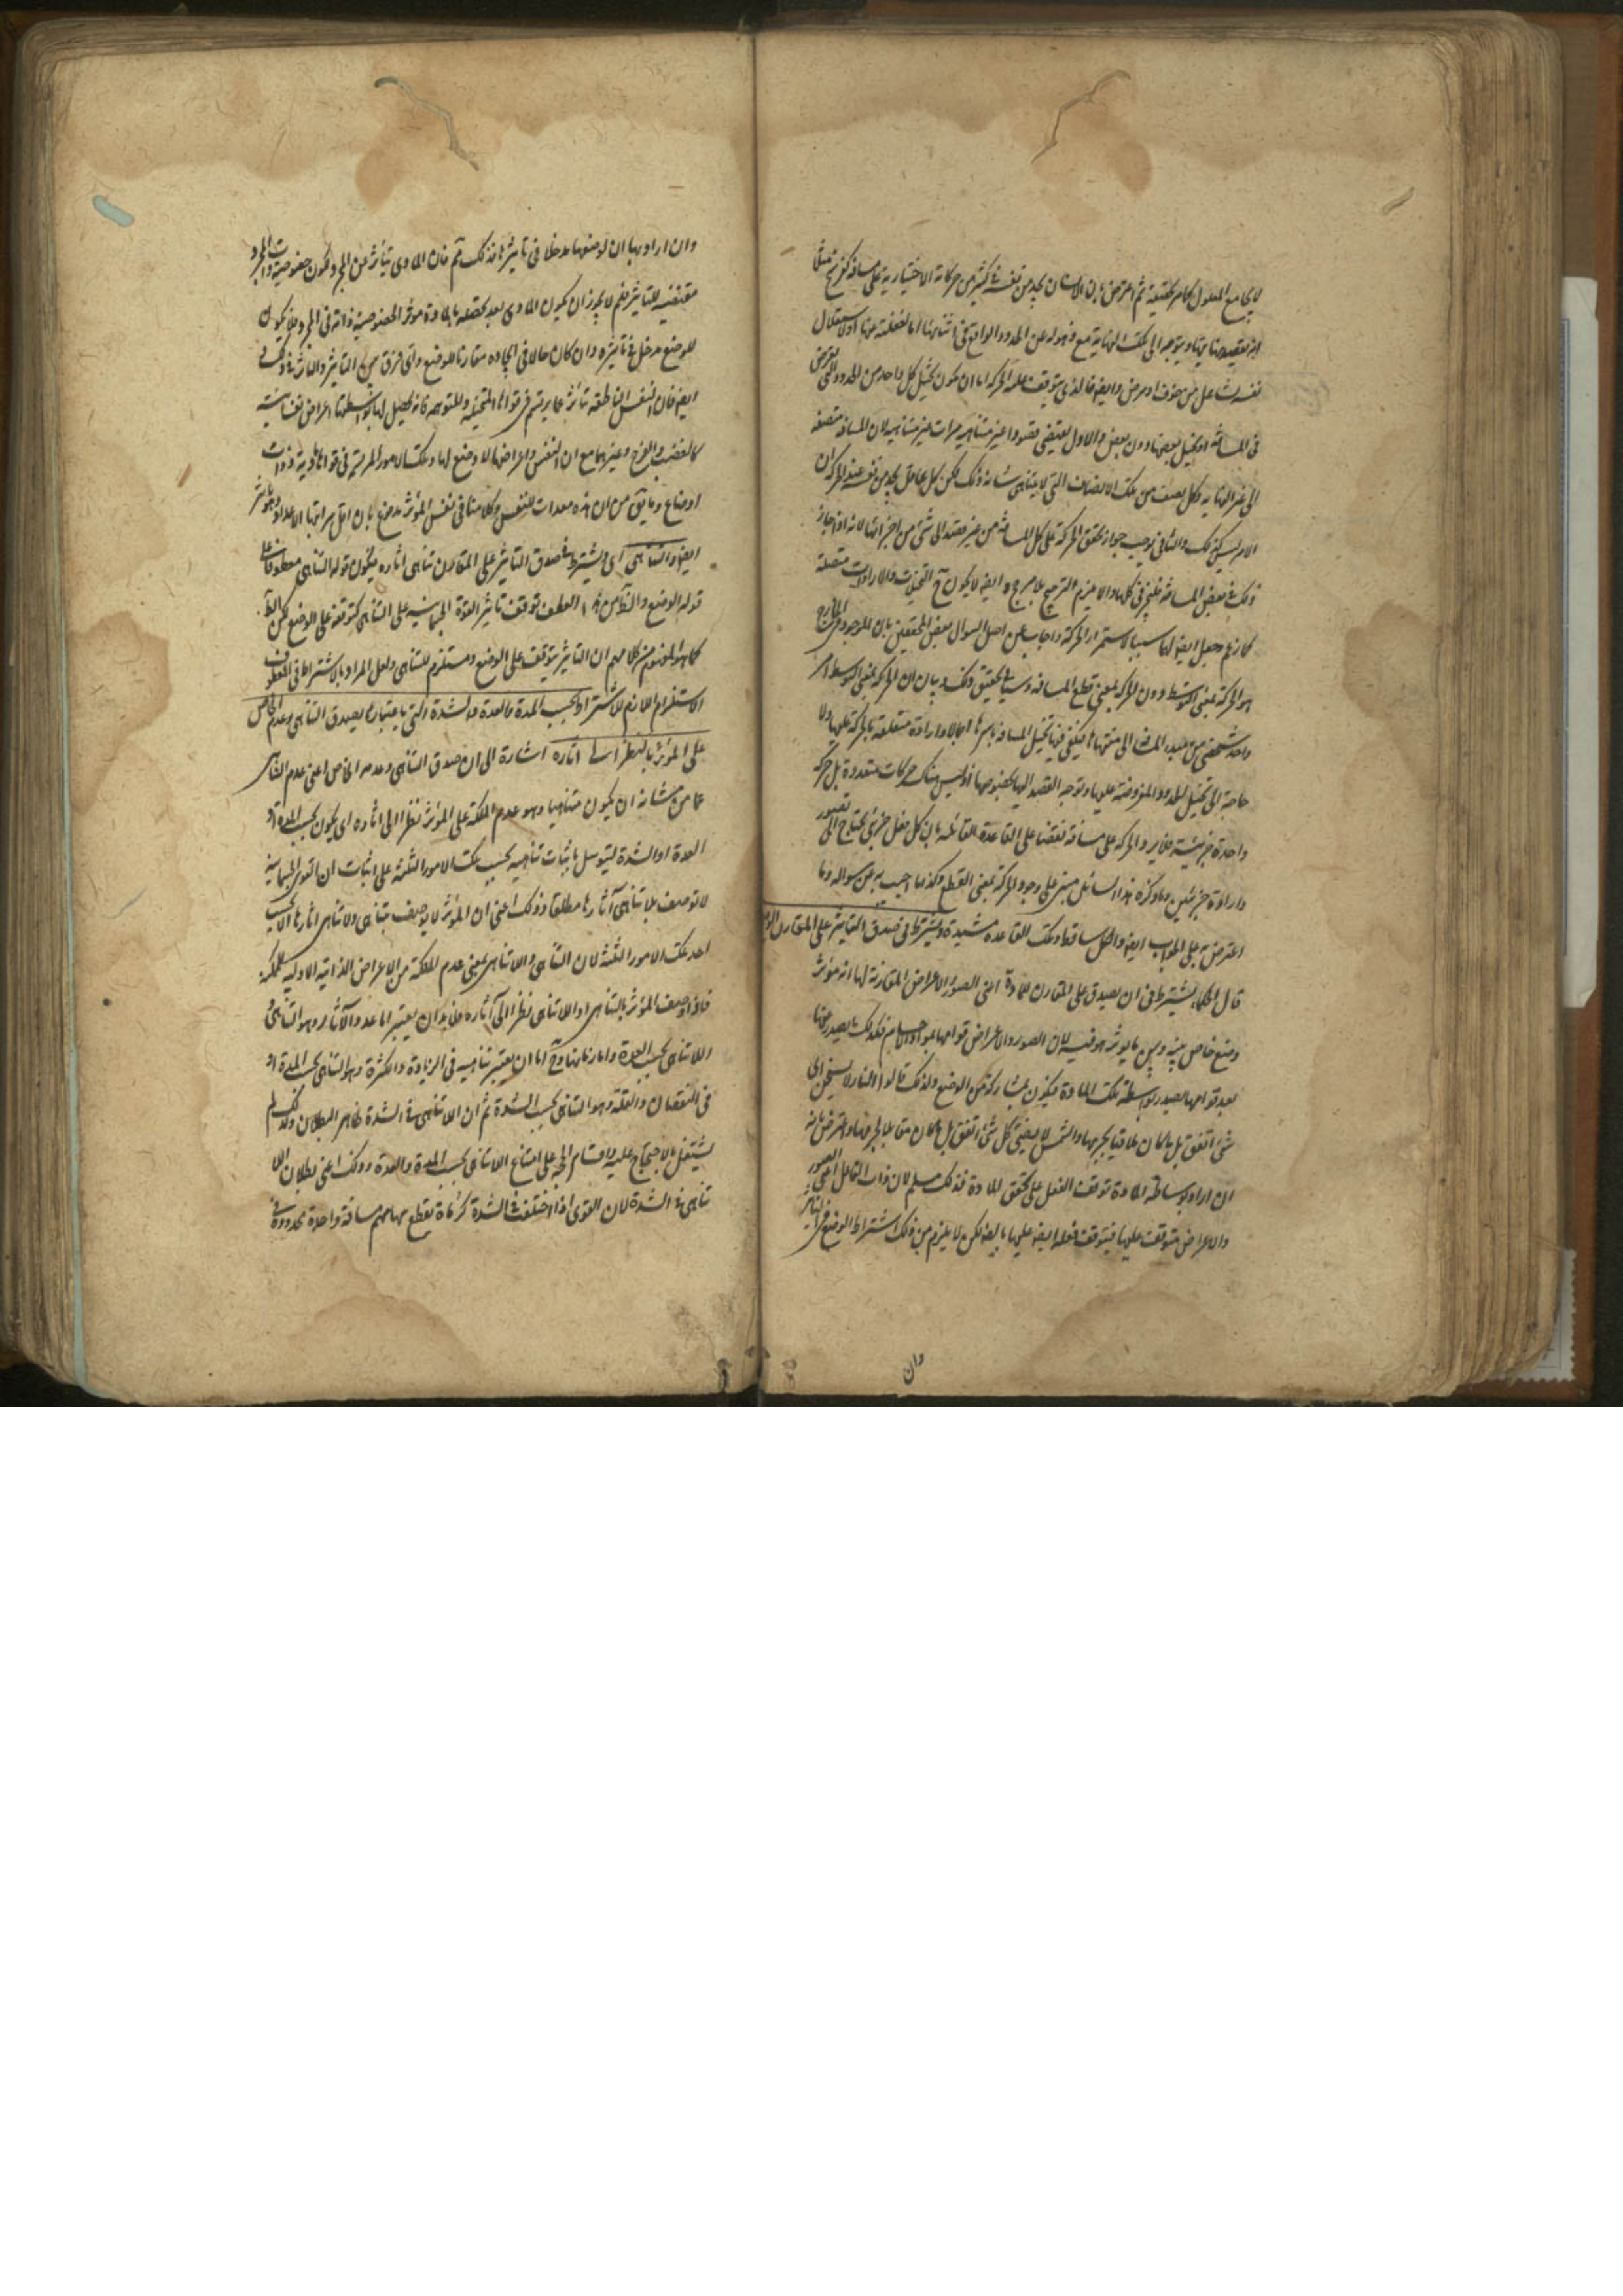 لا يجامع المعلول كما مر تحقيقه ثم اعترض بان الانسان يجد من نفسه في كثير من حركاته الاختيارية على مسافة كفرسخ مثلا
انه يقصد نهايتها ويتوجه الى تلك النهاية مع ذهوله عن الحدود الواقع في اثنائها اما لغفلته عنها او لاستقلال
نفسه من خوف او مرض وايضا فالذي يتوقف عليه الحركة اما ان يكون تخيل كل واحد من الحدود التي
في المسافة او تخيل بعضها دون بعض والاول يقتضي قصودا غير متناهية مرات غير متناهية لان المسافة منقسمة
الى غير النهاية وكل نصف من تلك الانصاف التي لا يتناهى شانه ذلك لكن كل عاقل يجد من نفسه عند الحركة ان
الامر ليس كذلك والثاني يوجب جواز تحقق الحركة على كل المسافة من غير قصد الى شيء من اجزائها لانه اذا جاز
ذلك في بعض المسافة فليجز في كلها والا يلزم الترجيح بلا مرجح وايضا لا يكون ح التخيلات والارادات متصلة
كما زعم وجعل ايضا لها سببا لاستمرار الحركة واجاب عن اصل السوال بعض المحققين بان الموجود في الخارج
هو الحركة بمعنى التوسط دون الحركة بمعنى قطع المسافة وسياتي تحقيق ذلك وبيان ان الحركة بمعنى التوسط امر
واحد شخصي من مبدء المسافة الى منتهاها فيكفي فيها تخيل المسافة باسرها اجمالا وارادة متعلقة بالحركة عليها ولا
حاجة الى تخيل الحدود المفروضة عليها وتوجه القصد اليها بخصوصها اذ ليس هناك حركات متعددة بل حركة
واحدة جزئية فلا يرد الحركة على مسافة نقضا على القاعدة القائلة بان كل فعل جزئي يحتاج الى تصور
وارادة جزئيين وما ذكره هذا السائل مبني على وجود الحركة بمعنى القطع وكذا ما اجيب به عن سواله وما
اعترض به على الجواب ايضا والكل ساقط وتلك القاعدة مشيدة ويشترط في صدق التاثير على المقارن الوضع
قال الحكماء يشترط في ان يصدق على المقارن للمادة اعني الصور والاعراض المقارنة لها انه مؤثر
وضع خاص بينه وبين ما يوثر هو فيه لان الصور والاعراض قوامها بمواد الاجسام فكذلك ما يصدر عنها
بعد قوامها يصدر بواسطة تلك المادة فيكون بمشاركة من الوضع ولذلك قالوا النار لا يسخن اي
شيء اتفق بل ما كان ملاقيا لجرمها والشمس لا يضيء كل شيء اتفق بل ما كان مقابلا لجرمها واعترض بانه
ان اراد بوساطة المادة توقف الفعل على تحقق المادة فذلك مسلم لان ذات الفاعل اعني الصور
والاعراض متوقف عليها فيتوقف فعله ايضا عليها بالضرورة لكن لا يلزم من ذلك اشتراط الوضع في التاثير
وان
وان اراد بها ان لوضعها مدخلا في تاثيرها فذلك مم فان المادي يتأثر عن المجرد ويكون خصوصية ذات المجرد
مقتضية للتاثير فلم لا يجوز ان يكون المادي بعد تحصله بالمادة موثرا لخصوصية ذاته في المجرد فلا يكون
للوضع مدخل في تاثيره وان كان حالا في ايجاده مقارنا للوضع واي فرق بين التاثير والتاثر في ذلك
ايضا فان النفس الناطقة تتأثر عما يرتسم في قواها المتخيلة والمتوهمة فانه يحصل لها بواسطتها اعراض نفسانية
كالغضب والفرح وغيرهما مع ان النفس واعراضها لا وضع لها وتلك الامور المرتسمة في قواها مادية ذوات
اوضاع وما يق من ان هذه معدات للنفس وكلامنا في نفس المؤثر مدفوع بان اقل مراتبها الاعداد وهو تاثير
ايضا والتناهي اي ويشترط في صدق التاثير على المقارن تناهي اثاره فيكون قوله التناهي معطوفا على
قوله الوضع والظاهر من هذا العطف توقف تاثير القوة الجسمانية على التناهي كتوقفه على الوضع لكن
كما هو المفهوم من كلامهم ان التاثير يتوقف على الوضع ومستلزم للتناهي ولعل المراد بالاشتراط في المعطوف
الاستلزام اللازم للاشتراط بحسب المدة والعدة والشدة التي باعتبارها يصدق التناهي وعدمه الخاص
على المؤثر بالنظر الى اثاره اشارة الى ان صدق التناهي وعدمه الخاص اعني عدم التناهي
عما من شانه ان يكون متناهيا وهو عدم الملكة على المؤثر نظرا الى اثاره اي يكون بحسب المدة او
العدة او الشدة ليتوسل باثبات تناهيه بحسب تلك الامور الثلثة على اثبات ان القوى الجسمانية
لا توصف بلا تناهي آثارها مطلقا وذلك اعني ان المؤثر لا يوصف بتناهي ولا تناهي اثارها الا بحسب
احد تلك الامور الثلثة لان التناهي واللاتناهي بمعنى عدم الملكة من الاعراض الذاتية الاولية للكم
فاذا وصف المؤثر بالتناهي او اللاتناهي نظرا الى آثاره فلا بد ان يعتبر اما عدد الآثار وهو التناهي او
اللاتناهي بحسب العدة واما زمانها وح اما ان يعتبر تناهيه في الزيادة والكثرة وهو التناهي بحسب المدة او
في النقصان والقلة وهو التناهي بحسب الشدة ثم ان اللاتناهي في الشدة ظاهر البطلان ولذلك لم
يشتغل بالاحتجاج عليه واقام الحجة على امتناع اللاتناهي بحسب المدة والعدة وذلك اعني بطلان اللا
تناهي في الشدة لان القوى اذا اختلفت في الشدة كرماة تقطع سهامهم مسافة واحدة محدودة في